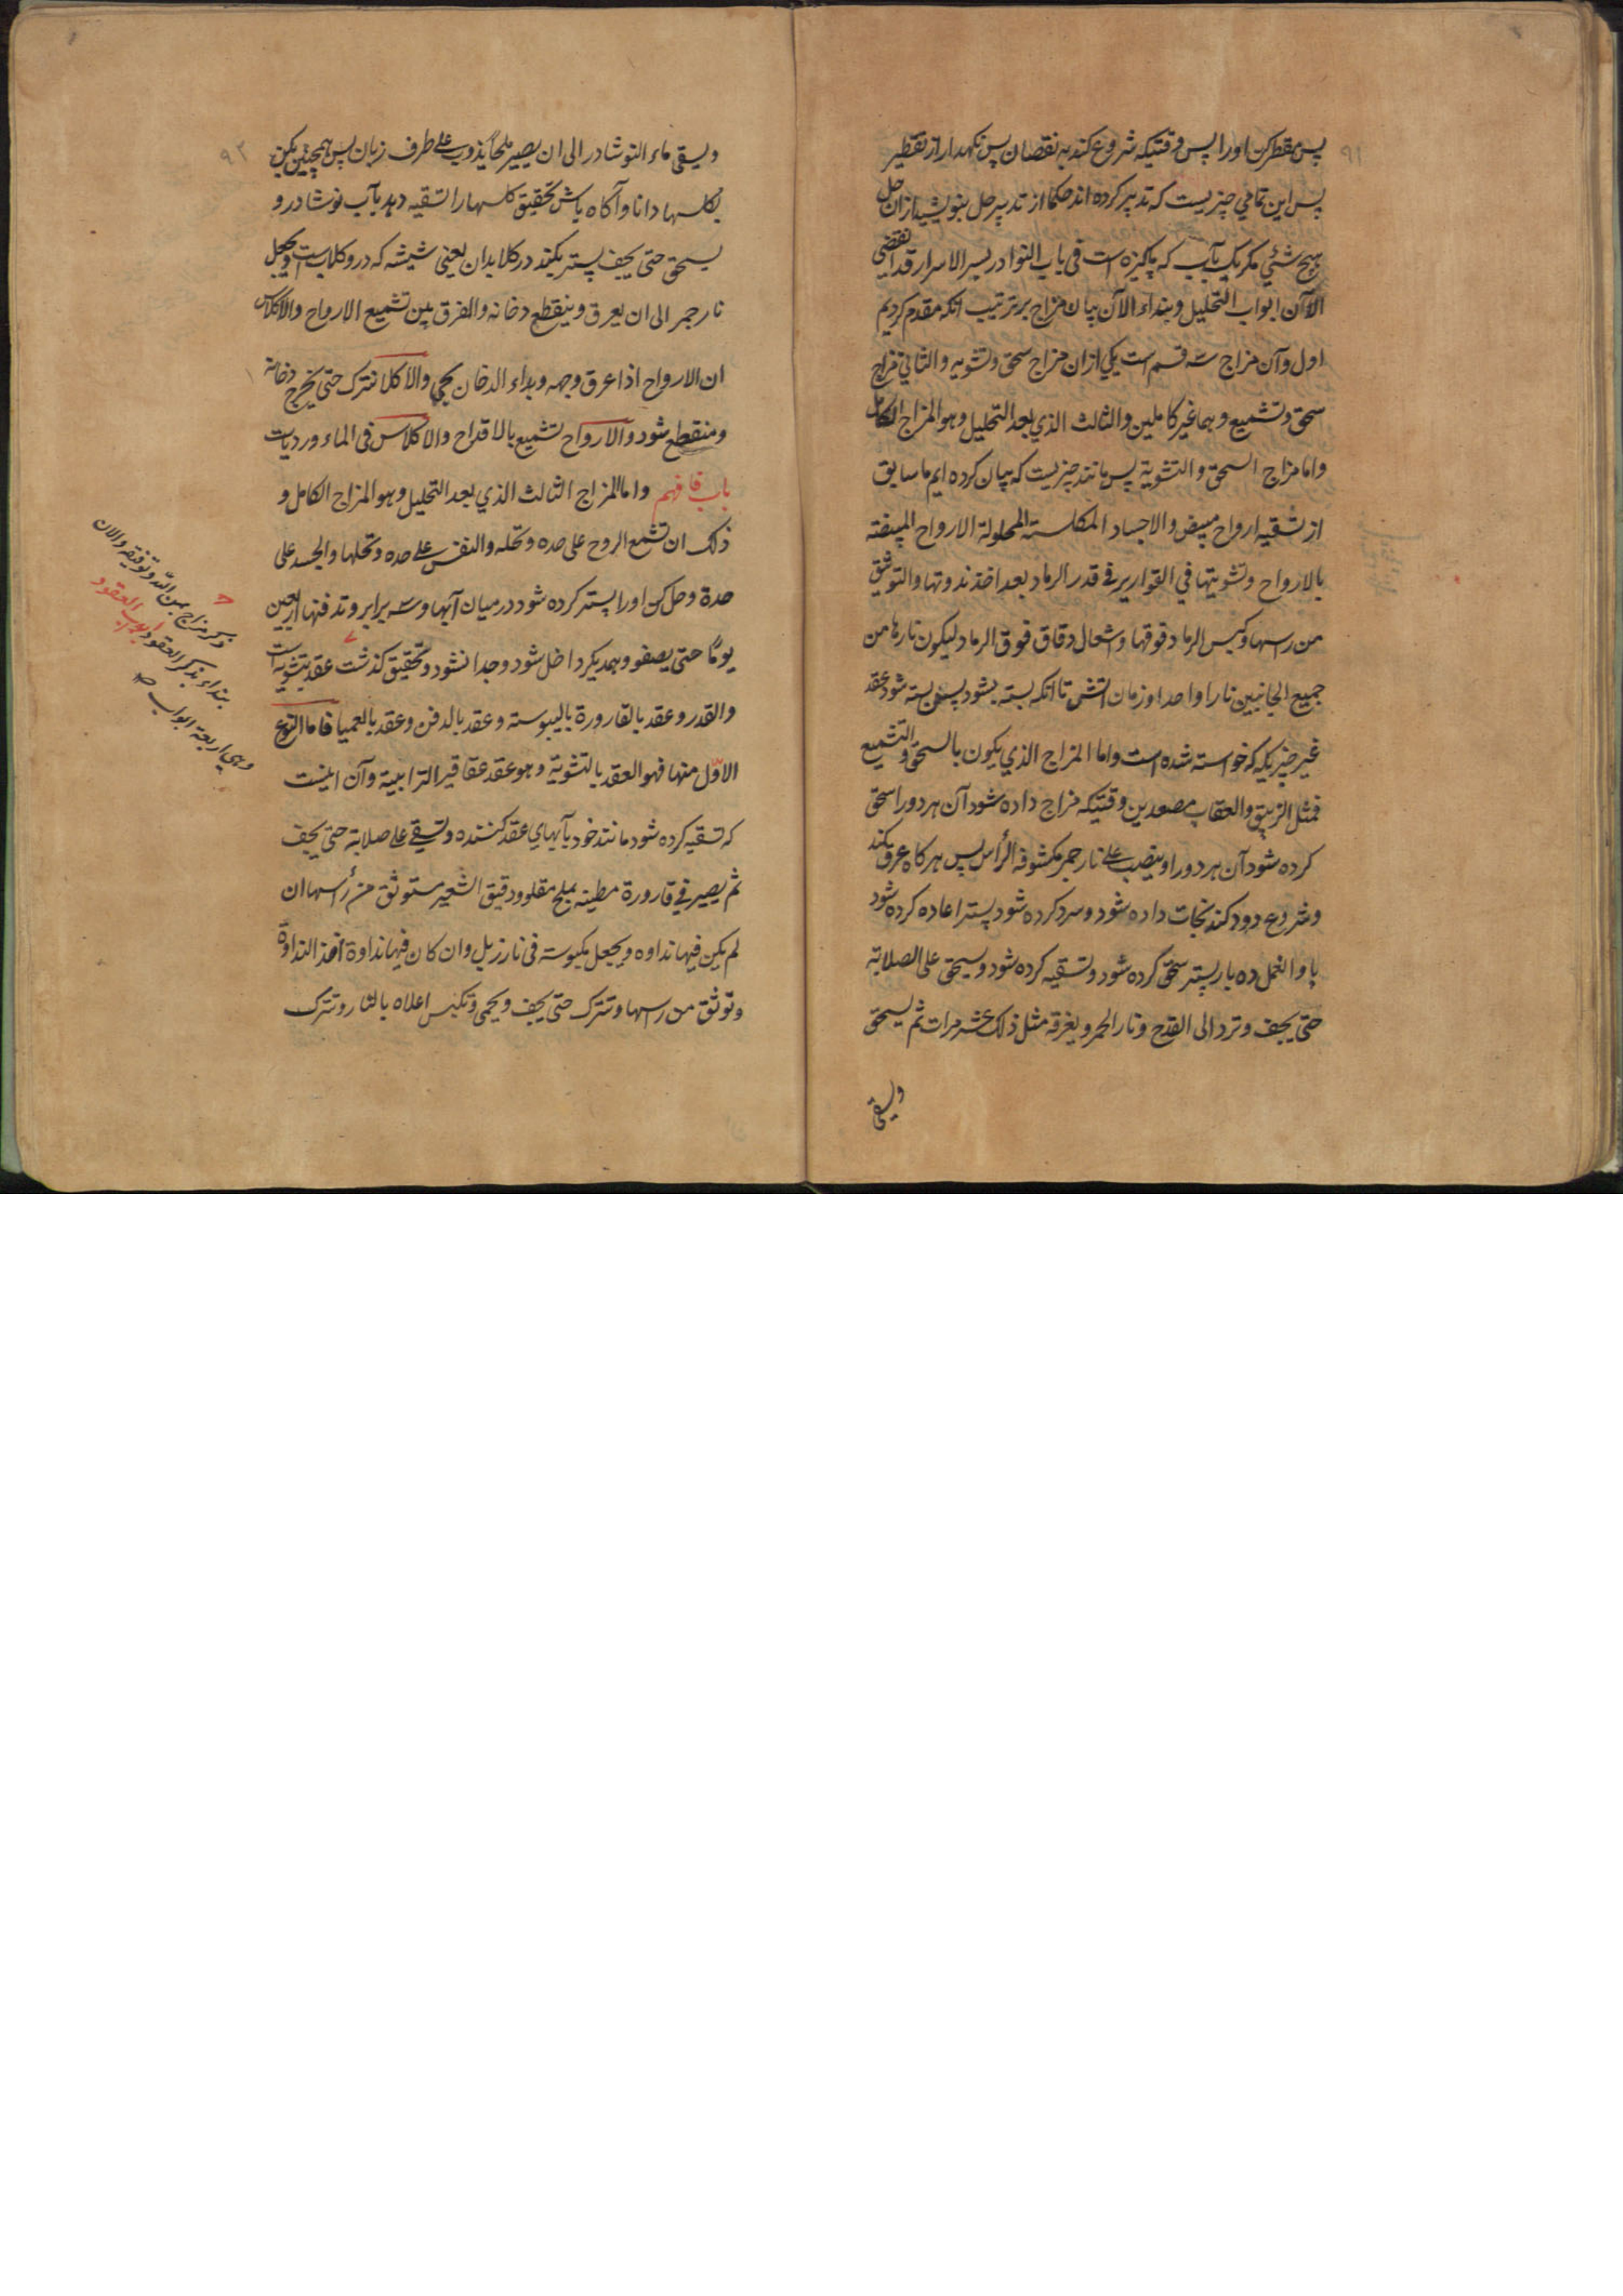 ٩١
پس مقطر کن اورا پس وقتیکه شروع کند به نقصان پس نکهدار از تقطیر
پس این تمامی چیزیست که تدبیر کرده اند حکما از تدبیر حل بنویسید ازان حل
هیچ شئی مکر یک بآب که پاکیزه است فی باب النوادر بسر الاسرار قد انقضی
الآن ابواب التحلیل وبنداء الآن بیان مزاج بر ترتیب انکه مقدم کردیم
اول وآن مزاج سه قسم است یکی ازان مزاج سحق وتشویه والثانی مزاج
سحق وتشمیع وهما غیر کاملین والثالث الذی بعد التحلیل وهو المزاج الکامل
واما مزاج السحق والتشویة پس مانند چیزیست که بیان کرده ایم ما سابق
از تسقیه ارواح مبیض والاجساد المکلسة المحلولة الارواح المبیضة
بالارواح وتشویتها فی القواریر فی قدر الرماد بعد اخذ ندوتها والتوثیق
من رسها وکبس الرماد فوقها واشعال دقاق فوق الرماد لیکون نارها من
جمیع الجانبین نارا واحدا وزمان اتش تا انکه بسته بشود پس بسته شود عقد
غیر چیزیکه که خواسته شده است واما المزاج الذی یکون بالسحق والتشمیع
فمثل الزیبق والعقاب مصعدین وقتیکه مزاج داده شود آن هر دو را سحق
کرده شود آن هر دو را وینصب علی نار جمر مکشوفه الرأس پس هر کاه عرق بکند
وشروع دود کند نجات داده شود وسرد کرده شود پستر اعاده کرده شود
با والعمل ده بار پستر سحق کرده شود وتسقیه کرده شود ویسحق علی الصلابة
حتی یجف وترد الی القدح ونار الجمر ویعرقه مثل ذلک عشر مرات ثم یسحق
ویسقی
٩٢
ویسقی ماء النوشادر الی ان یصیر ملحا یذوب علی طرف زبان پس همچنین بکن
بکلسها دانا وآکاه باش تحقیق کلسها را تسقیه دهد بآب نوشادر و
یسحق حتی یجف پستر بکند در کلابدان یعنی شیشه که درو کلابست ویجعل
نار جمر الی ان یعرق وینقطع دخانه والفرق بین تشمیع الارواح والاکلاس
ان الارواح اذا عرق وجهه وبداء الدخان یجی والاکلا تترک حتی یخرج دخانه
ومنقطع شود والارواح تشمیع بالاقداح والاکلاس فی الماء وردیات
باب فافهم واما المزاج الثالث الذی بعد التحلیل وهو المزاج الکامل و
ذلک ان تشمع الروح علی حده وتحله والنفس علی حده وتحلها والجسد علی
حدة وحل کن اورا پستر کرده شود در میان آبها وسه برابر وتدفنها اربعین
یوما حتی یصفو وبهمدیکر داخل شود وجدا نشود وتحقیق کذشت عقد بتشویه است
والقدر وعقد بالقارورة بالیبوسته وعقد بالدفن وعقد بالعمیا فاما النوع
الاول منها فهو العقد بالتشویة وهو عقد عقاقیر الترابیة وآن اینست
که تسقیه کرده شود مانند خود بآبهای عقد کننده وتسقی علی صلابة حتی یجف
ثم یصیر فی قارورة مطینه بملح مقلو ودقیق الشعیر مستوثق من رأسها ان
لم یکن فیها نداوه ویجعل مکبوسته فی نار زبل وان کان فیها نداوة اخذ النداوة
وتوثق من رسها وتترک حتی یجف ویحمی وتکبس اعلاه بالنار وتترک
ذکر مزاج بمن الله وتوفیقه والان
بنداء بذکر العقود ابواب العقود
وهی اربعة ابواب